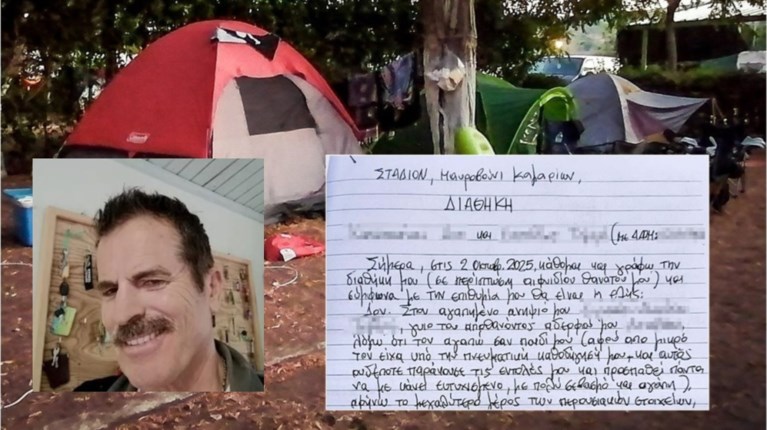 Coleman
ΣΤΑΔΙΟΝ, Μαυροβούνι Καμαρίων,
ΔΙΑΘΗΚΗ
και (με ΑΦΜ:
Σήμερα, στις 2 Οκτωβ. 2025, κάθομαι και γράφω την
διαθήκη μου (σε περίπτωση αιφνιδίου θανάτου μου) και
σύμφωνα με την επιθυμία μου θα είναι η εξής:
1ον. Στον αγαπημένο ανηψιό μου
, γυιο του αποθανόντος αδερφού μου
λόγω, ότι τον αγαπώ σαν παιδί μου (αφού από μικρό
τον είχα υπό την πνευματική καθοδήγησή μου, και αυτός
ουδέποτε παράκουσε τις εντολές μου και προσπαθεί πάντα
να με κάνει ευτυχισμένο, με πολύ σεβασμό και αγάπη),
αφήνω το μεγαλύτερο μέρος των περιουσιακών στοιχείων,